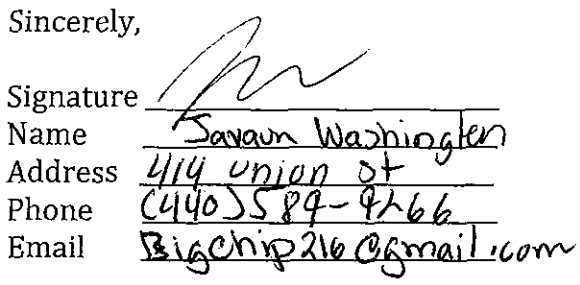 Sincerely,
Signature
Name Javaun Washington
Address 414 Union St
Phone (440) 589-9266
Email Bigchip216@gmail.com